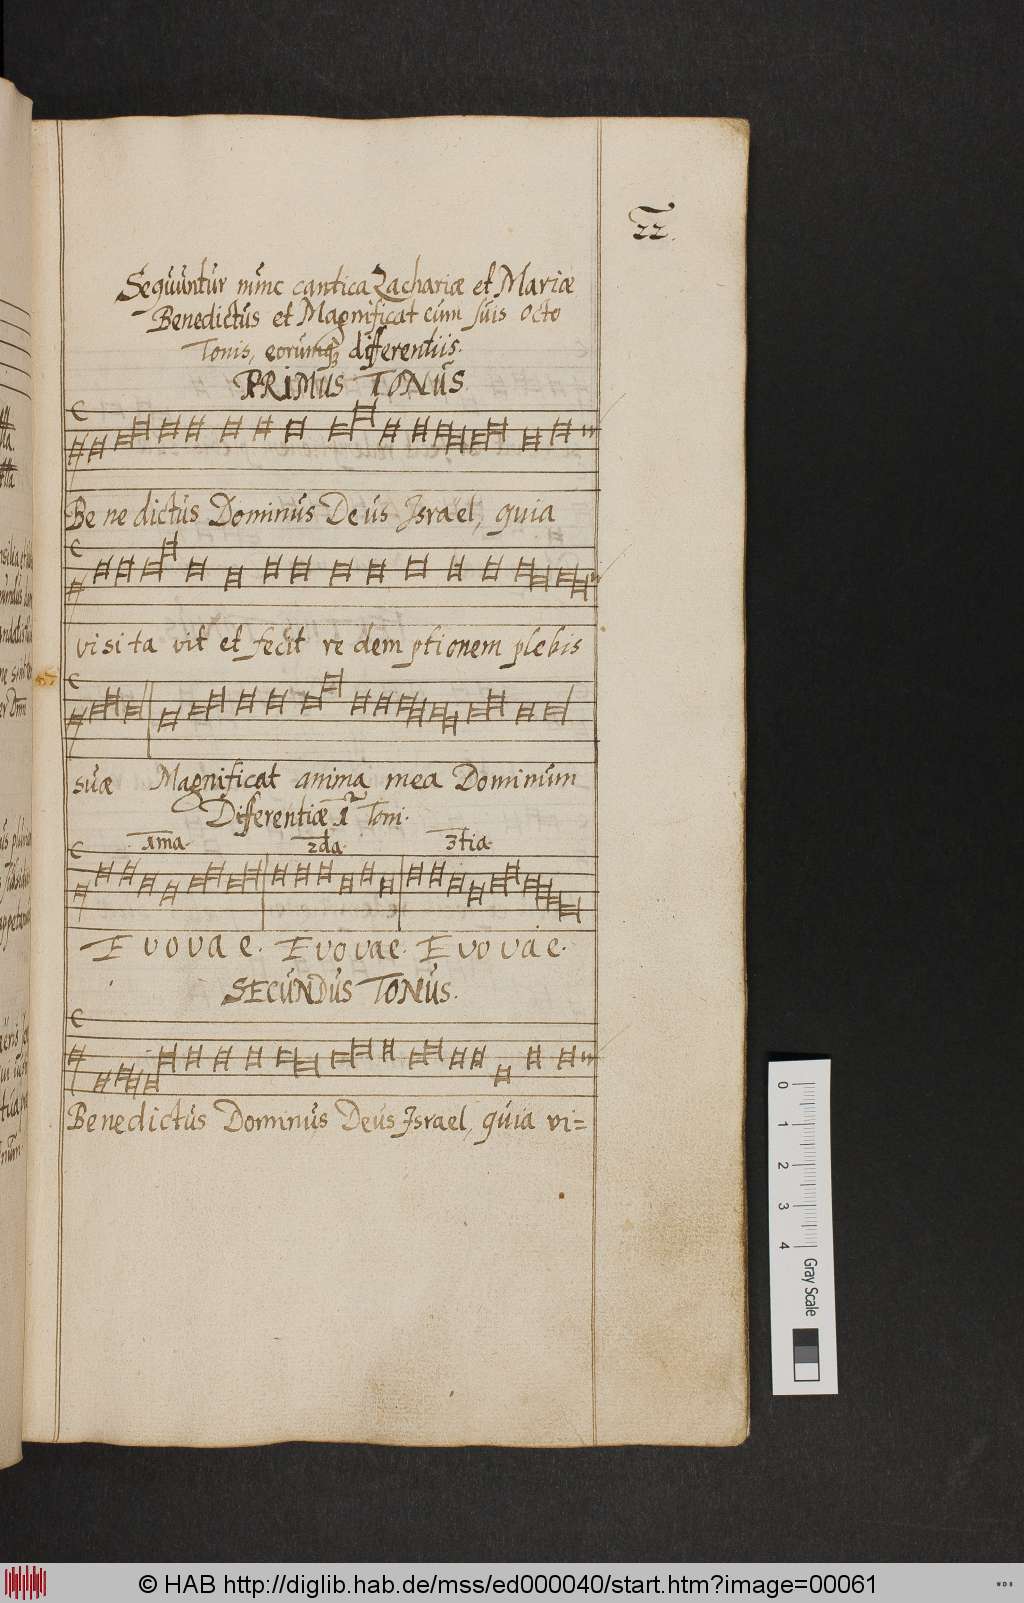 22.
Sequuntur nunc cantica Zachariæ et Mariæ
Benedictus et Magnificat cum suis octo
Tonis, eorumq₃ differentiis.
PRIMUS TONUS
Be ne dictus Dominus De us Israel, quia
visi ta vit et fecit re dem ptionem plebis
suæ Magnificat anima mea Dominum
Differentiæ 1 Toni.
1ma. 2da. 3tia.
E vo va e. E vo va e. E vo va e.
SECUNDUS TONUS.
Benedictus Dominus Deus Israel, quia vi=
0 1 2 3 4 Gray Scale
© HAB http://diglib.hab.de/mss/ed000040/start.htm?image=00061